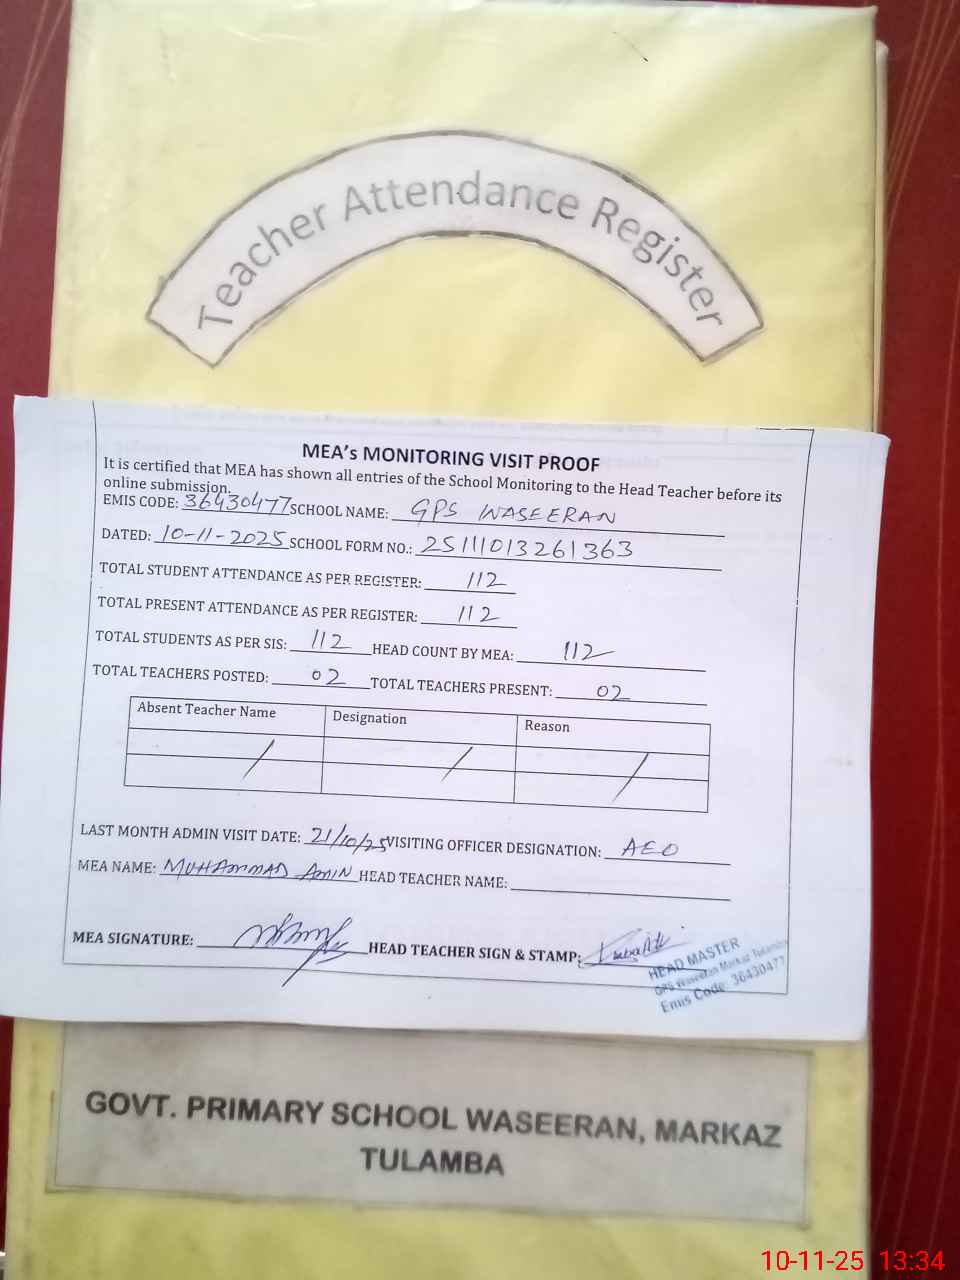 Teacher Attendance Register
MEA's MONITORING VISIT PROOF
It is certified that MEA has shown all entries of the School Monitoring to the Head Teacher before its
online submission.
EMIS CODE: 36430477 SCHOOL NAME: GPS WASEERAN
DATED: 10-11-2025 SCHOOL FORM NO.: 25111013261363
TOTAL STUDENT ATTENDANCE AS PER REGISTER: 112
TOTAL PRESENT ATTENDANCE AS PER REGISTER: 112
TOTAL STUDENTS AS PER SIS: 112 HEAD COUNT BY MEA: 112
TOTAL TEACHERS POSTED: 02 TOTAL TEACHERS PRESENT: 02
Absent Teacher Name Designation Reason
/ / /
LAST MONTH ADMIN VISIT DATE: 21/10/25 VISITING OFFICER DESIGNATION: AEO
MEA NAME: MUHAMMAD AMIN HEAD TEACHER NAME:
MEA SIGNATURE: HEAD TEACHER SIGN & STAMP:
HEAD MASTER
GPS Waseeran Markaz Tulamba
Emis Code: 36430477
GOVT. PRIMARY SCHOOL WASEERAN, MARKAZ
TULAMBA
10-11-25 13:34